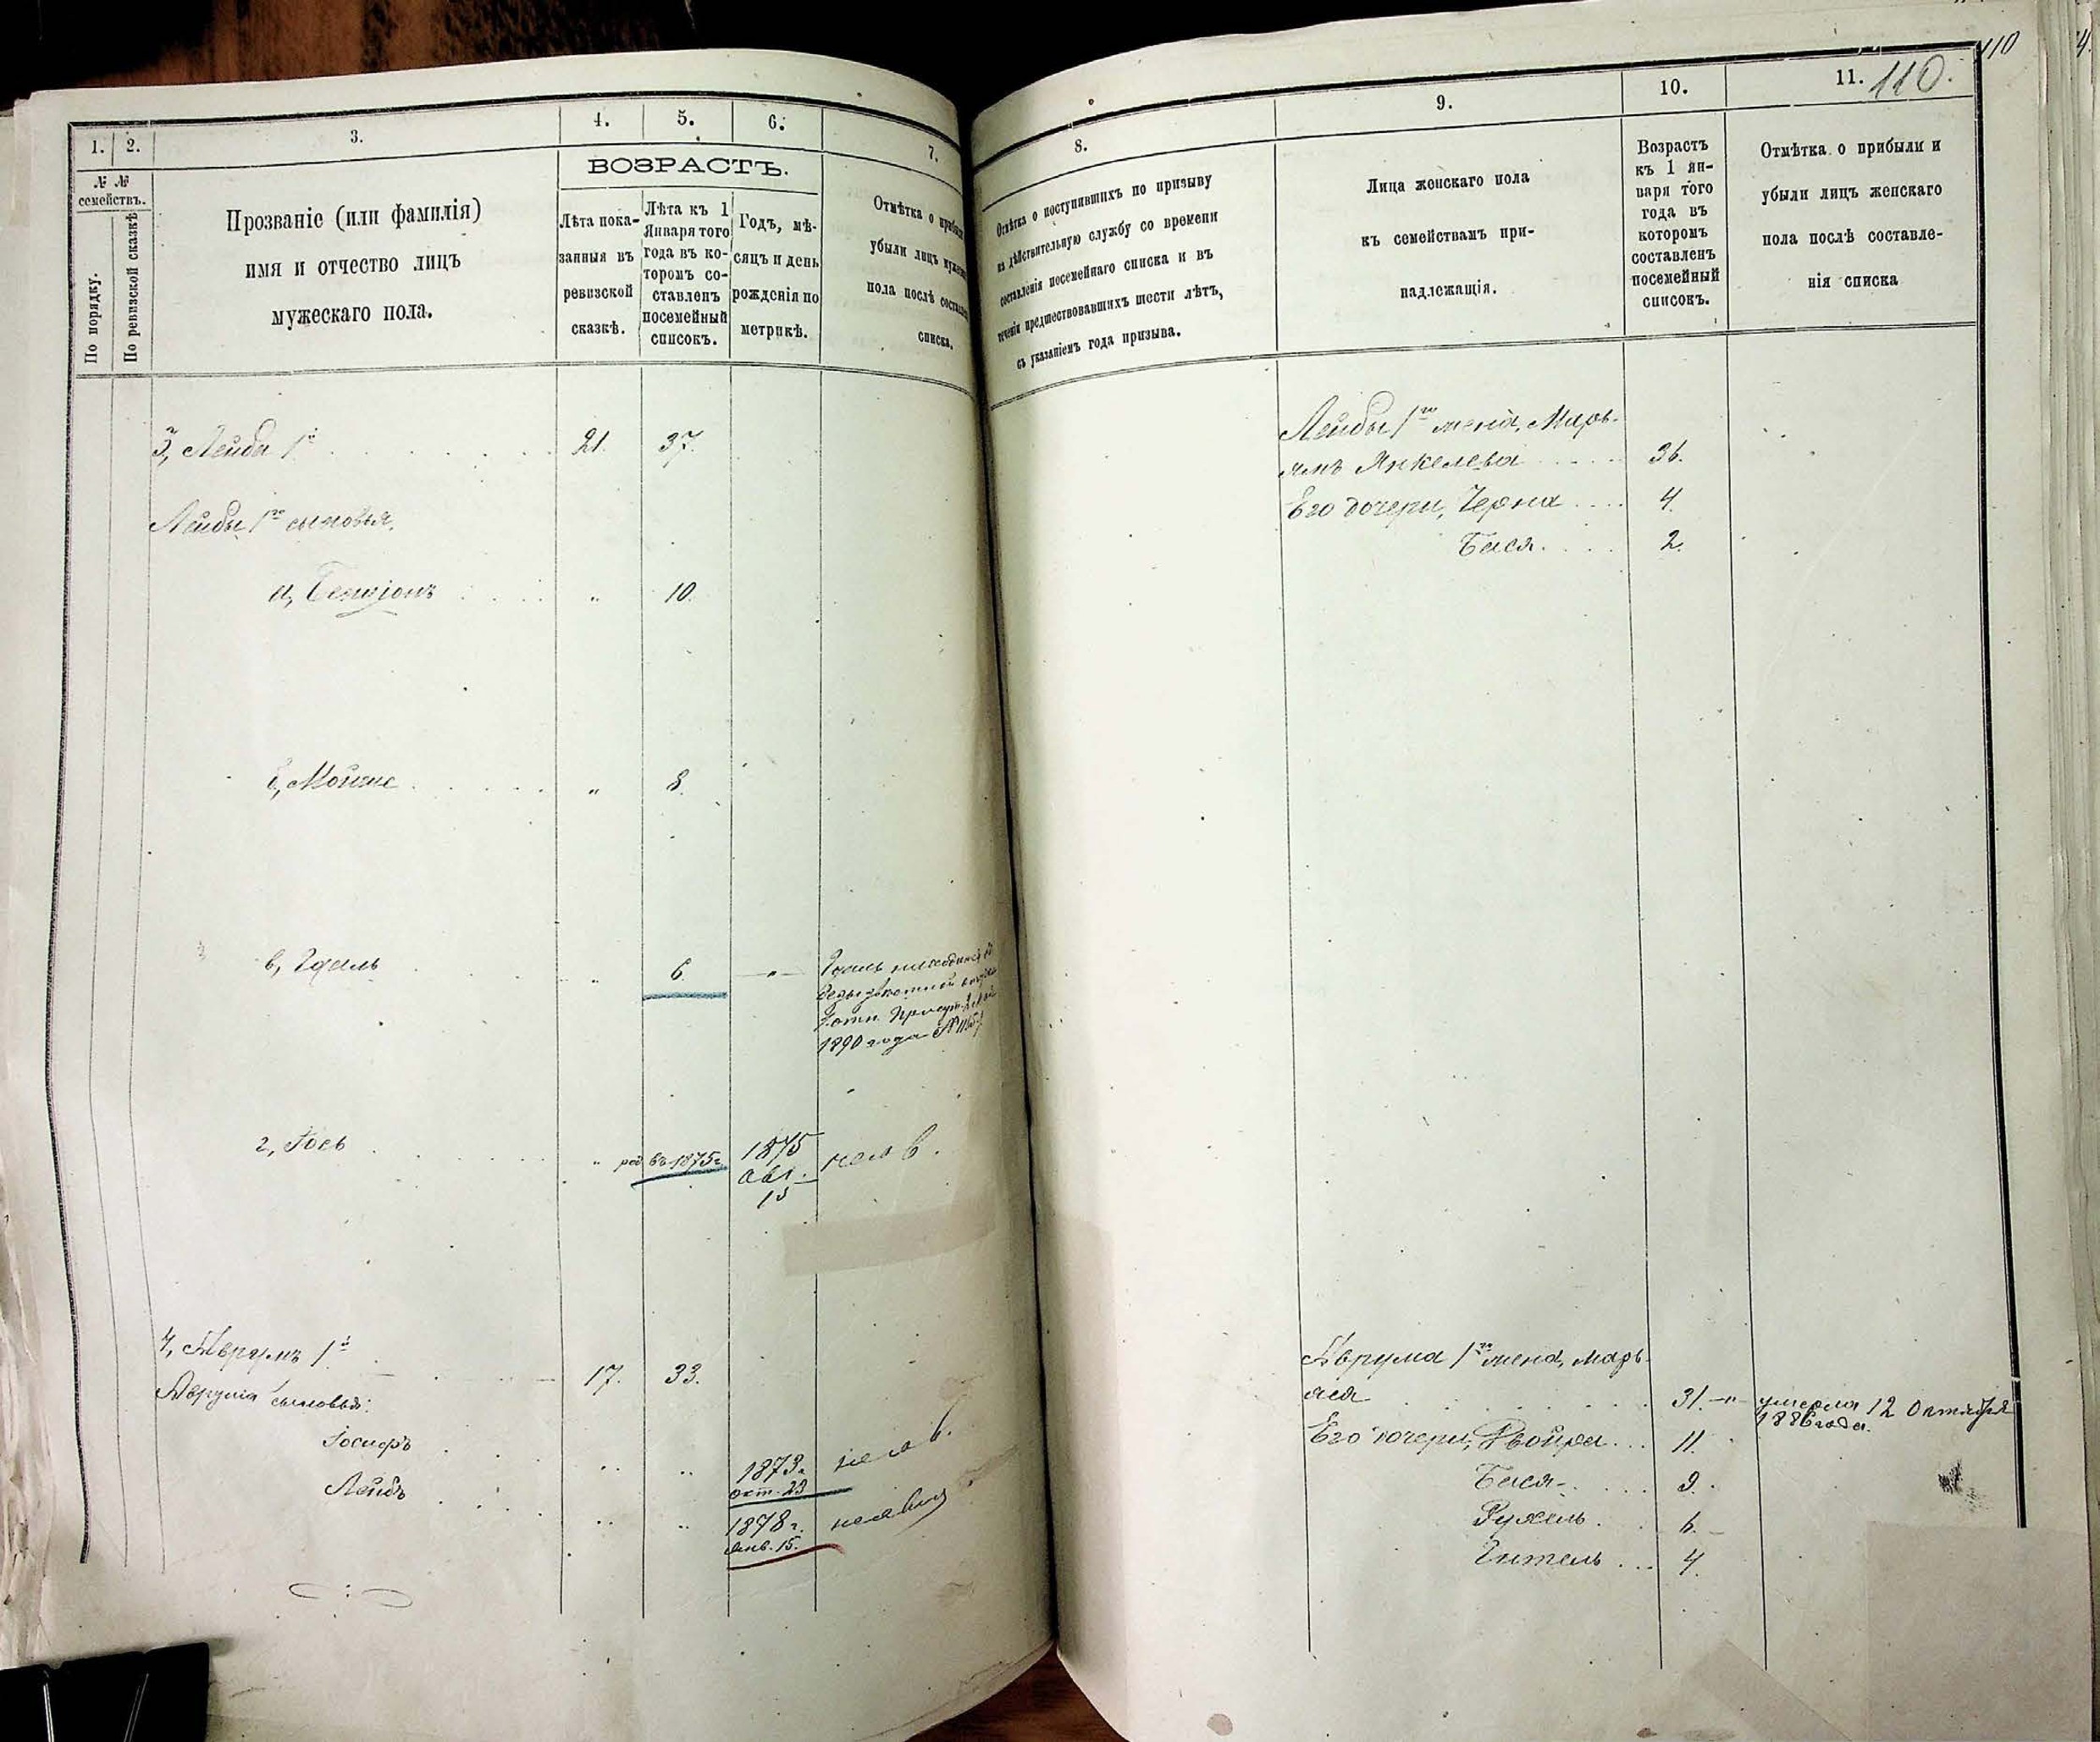 110
1.
2.
3.
4.
5.
6.
7.
№ №
семействъ.
По порядку.
По ревизской сказкѣ
Прозваніе (или фамилія)
имя и отчество лицъ
мужескаго пола.
ВОЗРАСТЪ.
Лѣта пока-
занныя въ
ревизской
сказкѣ.
Лѣта къ 1
Января того
года въ ко-
торомъ со-
ставленъ
посемейный
списокъ.
Годъ, мѣ-
сяцъ и день
рожденія по
метрикѣ.
Отмѣтка о
убыли лицъ
пола послѣ
списка.
3, Лейба 1й 21. 37.
Лейбы 1го сыновья,
а, Бенціонъ " 10.
б, Мойше " 8.
в, Гдаль " 6. "
Гдаль находится
безызвѣстной
1890 года №
г, Іось " род въ 1875г. 1875
авг.
15
неяв.
4, Аврумъ 1й 17. 33.
Аврума сыновья:
Іосифъ " " 1873г. неяв.
окт. 23
Лейбъ " " 1878г.
янв. 15.
8.
9.
10.
11. 110.
Отмѣтка о поступившихъ по призыву
на дѣйствительную службу со времени
составленія посемейнаго списка и въ
теченіи предшествовавшихъ шести лѣтъ,
съ указаніемъ года призыва.
Лица женскаго пола
къ семействамъ при-
надлежащія.
Возрастъ
къ 1 ян-
варя того
года въ
которомъ
составленъ
посемейный
списокъ.
Отмѣтка о прибыли и
убыли лицъ женскаго
пола послѣ составле-
нія списка
Лейбы 1го жена, Марь-
ямъ Янкелева 36.
Его дочери, Черна 4.
Бася 2.
Аврума 1го жена, Марь-
яся 31. умерла 12 Октября
1886 года.
Его дочери, Двойра 11.
Бася 9.
Рухель 6.
Гитель 4.